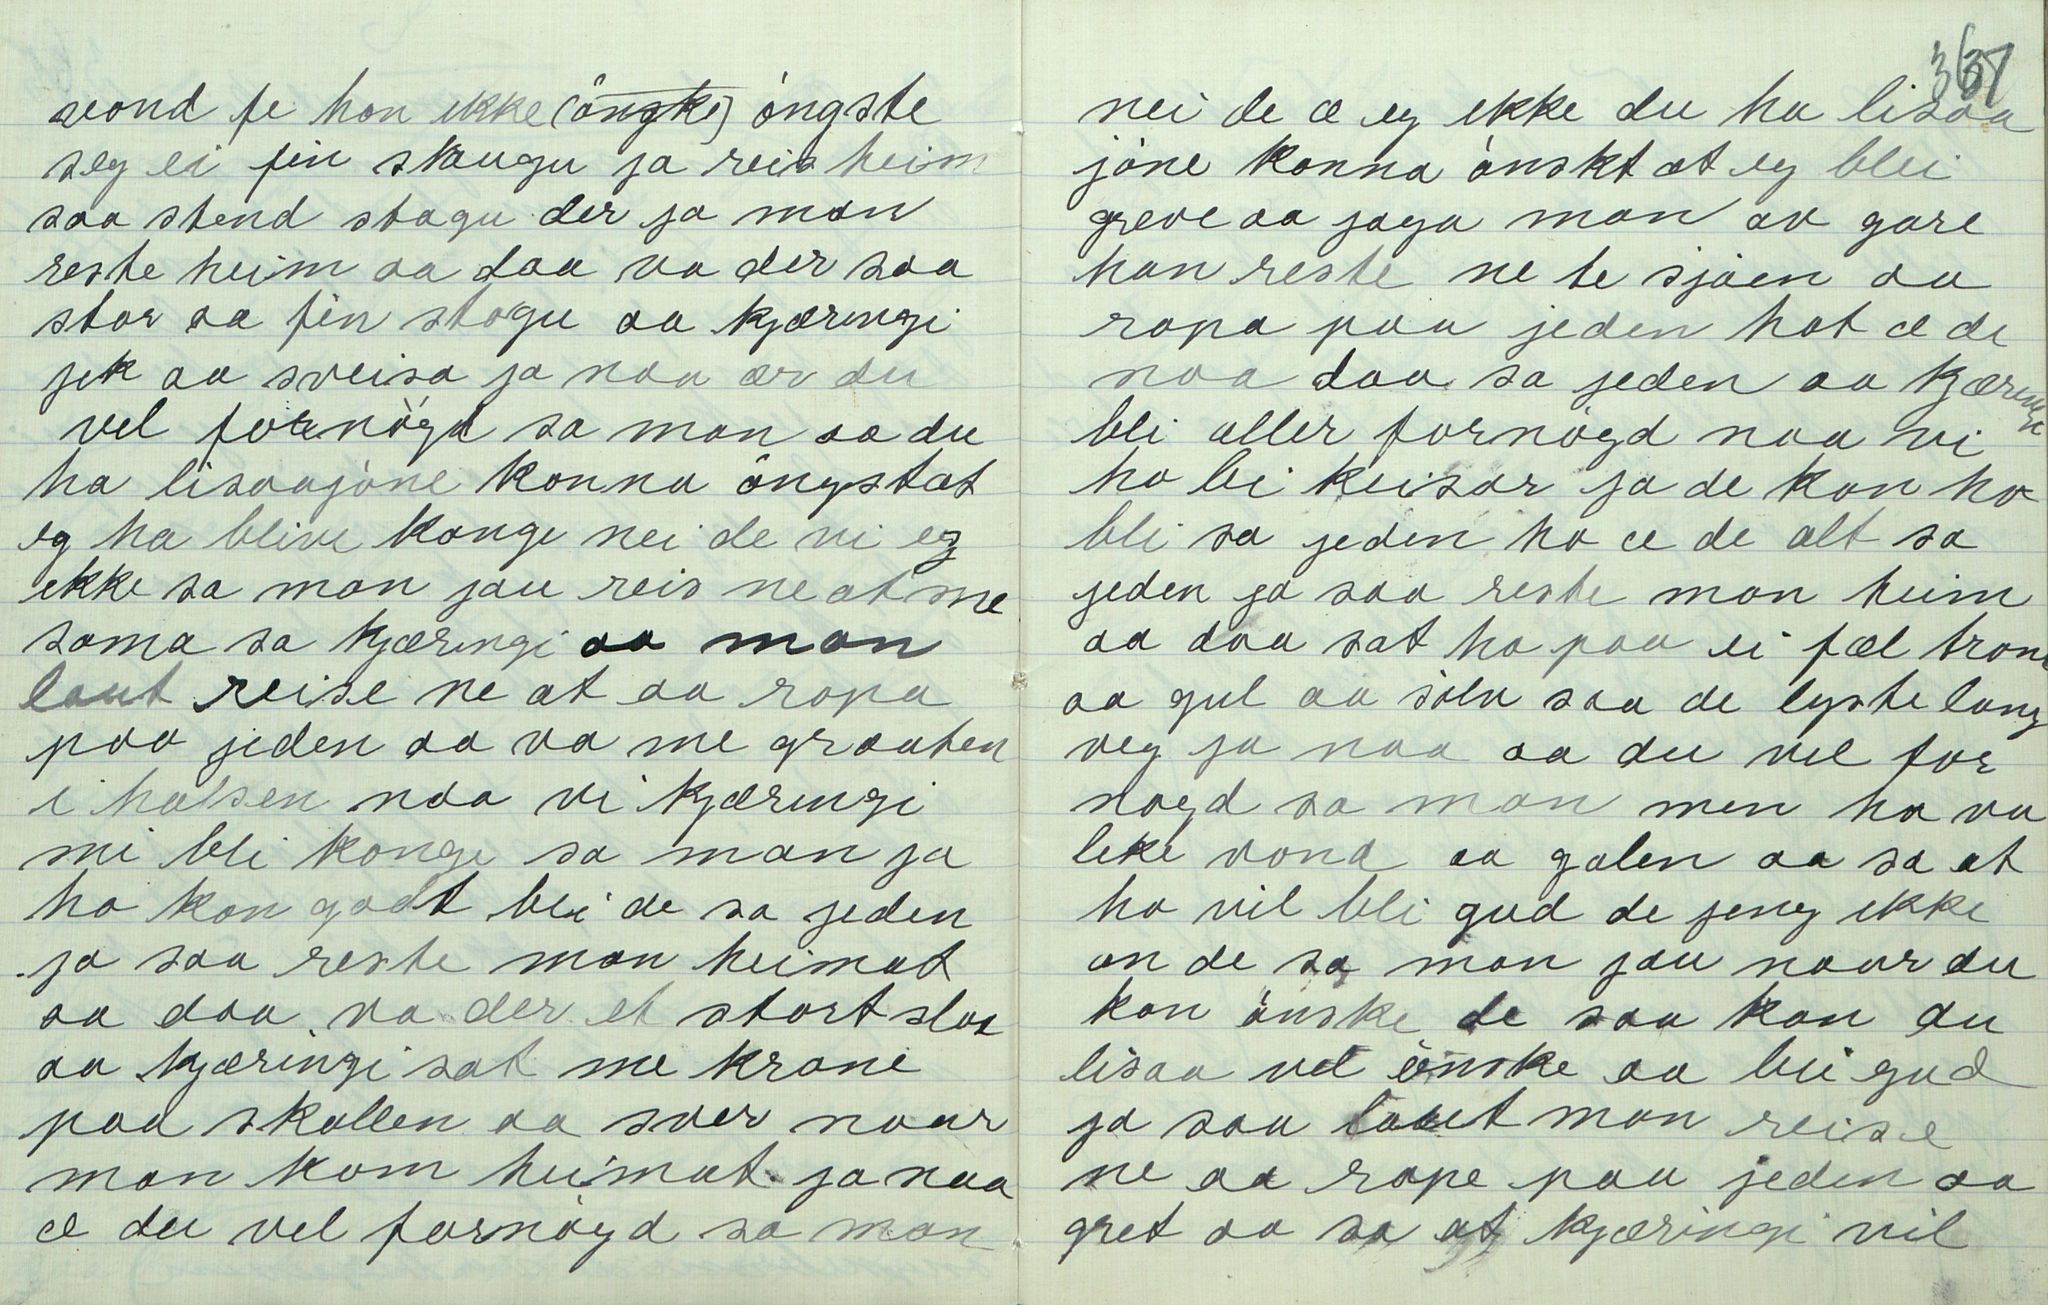 vond fe hon ikke (önske) öngste
seg ei fin staugu ja reis heim
saa stend stogu der ja man
reste heim aa daa va der saa
stor aa fin stogu aa kjæringi
jek aa sveisa ja naa ær du
vel fornögd sa man aa du
ha lisaajöne konna öngstat
eg ha blive konge nei de vi eg
ikke sa man jau reis ne at me
sama sa kjæringi aa man
laut reise ne at aa ropa
paa jeden aa va me graaten
i halsen naa vi kjæringi
mi bli konge sa man ja
ho kan godt bli de sa jeden
ja saa reste man heimat
aa daa va der et stort slaa
aa kjæringi sat me krone
paa skallen aa svor naar
man kom heimat ja naa
æ du vel fornögd sa man
367
nei de æ eg ikke du ha lisaa
jöne konna önskt at eg blei
greve aa jaga man av gare
han reste ne te sjöen aa
ropa paa jeden hot æ de
naa daa sa jeden aa kjæringen
bli aller fornögd naa vi
ho bli keisar ja de kan ho
bli sa jeden ho æ de alt sa
jeden ja saa reste man heim
aa daa sat ho paa ei fæl trone
aa gul aa sölv saa de lyste lang
veg ja naa æa du vel for
nogd sa man men ho va
like vond aa galen aa sa at
ho vil bli gud de jeng ikke
an de sa man jau naar du
kan önske de saa kan du
lisaa vel önske aa bli gud
ja saa laut man reise
ne aa rope paa jeden aa
gret aa sa at kjæringi vil